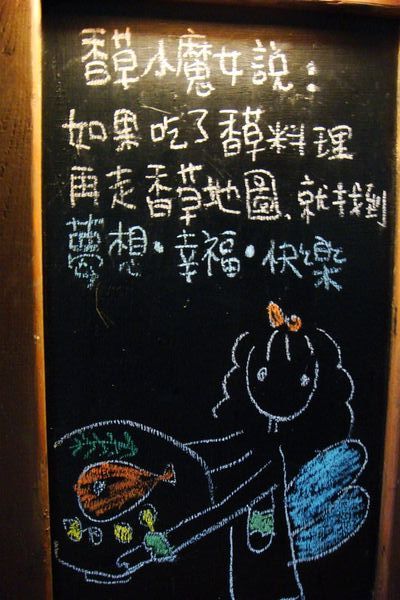 香草小魔女說：
如果吃了香草料理
再走香草地圖，就找到
夢想・幸福・快樂